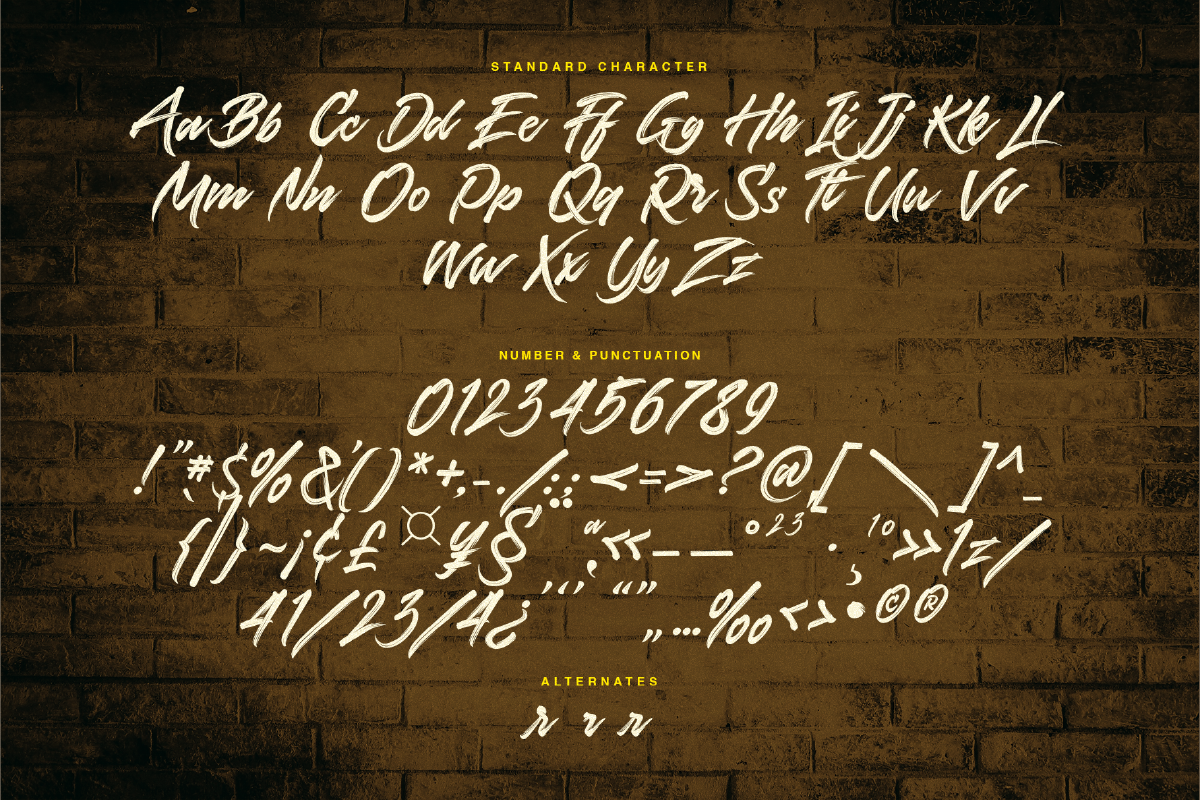 STANDARD CHARACTER
Aa Bb Cc Dd Ee Ff Gg Hh Ii Jj Kk Ll
Mm Nn Oo Pp Qq Rr Ss Tt Uu Vv
Ww Xx Yy Zz
NUMBER & PUNCTUATION
0123456789
!"#$%&'()*+,-./:;<=>?@[\]^_
`{|}~¡¢£¤¥§¨ª«–—°²³´·¸¹º»1⁄
41/23/4¿‘’‚“”„…‰‹›•©®
ALTERNATES
r r r